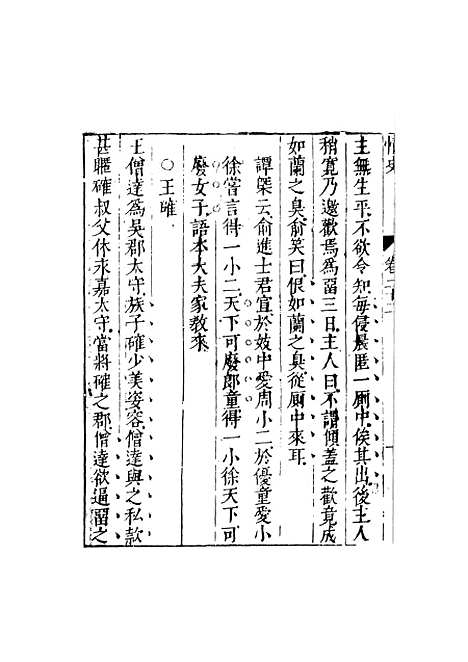 情史
卷二十二
主無生平不欲令知每侵晨匿一厠中俟其出後主人
稍寛乃邀歡焉爲畱三日主人曰不謂傾葢之歡竟成
如蘭之臭俞笑曰恨如蘭之臭從厠中來耳
譚槩云俞進士君宣於妓中愛周小二於優童愛小
徐嘗言得一小二天下可廢郎童得一小徐天下可
廢女子語本大夫家敎來
○王確
王僧達爲吳郡太守族子確少美姿容僧達與之私款
甚暱確叔父休永嘉太守當將確之郡僧達欲逼畱之